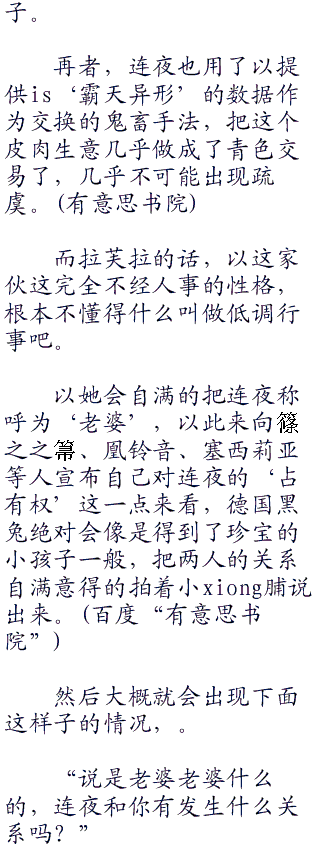 子。
再者，连夜也用了以提
供is‘霸天异形’的数据作
为交换的鬼畜手法，把这个
皮肉生意几乎做成了青色交
易了，几乎不可能出现疏
虞。(有意思书院)
而拉芙拉的话，以这家
伙这完全不经人事的性格，
根本不懂得什么叫做低调行
事吧。
以她会自满的把连夜称
呼为‘老婆’，以此来向篠
之之箒、凰铃音、塞西莉亚
等人宣布自己对连夜的‘占
有权’这一点来看，德国黑
兔绝对会像是得到了珍宝的
小孩子一般，把两人的关系
自满意得的拍着小xiong脯说
出来。(百度“有意思书
院”)
然后大概就会出现下面
这样子的情况，。
“说是老婆老婆什么
的，连夜和你有发生什么关
系吗？”